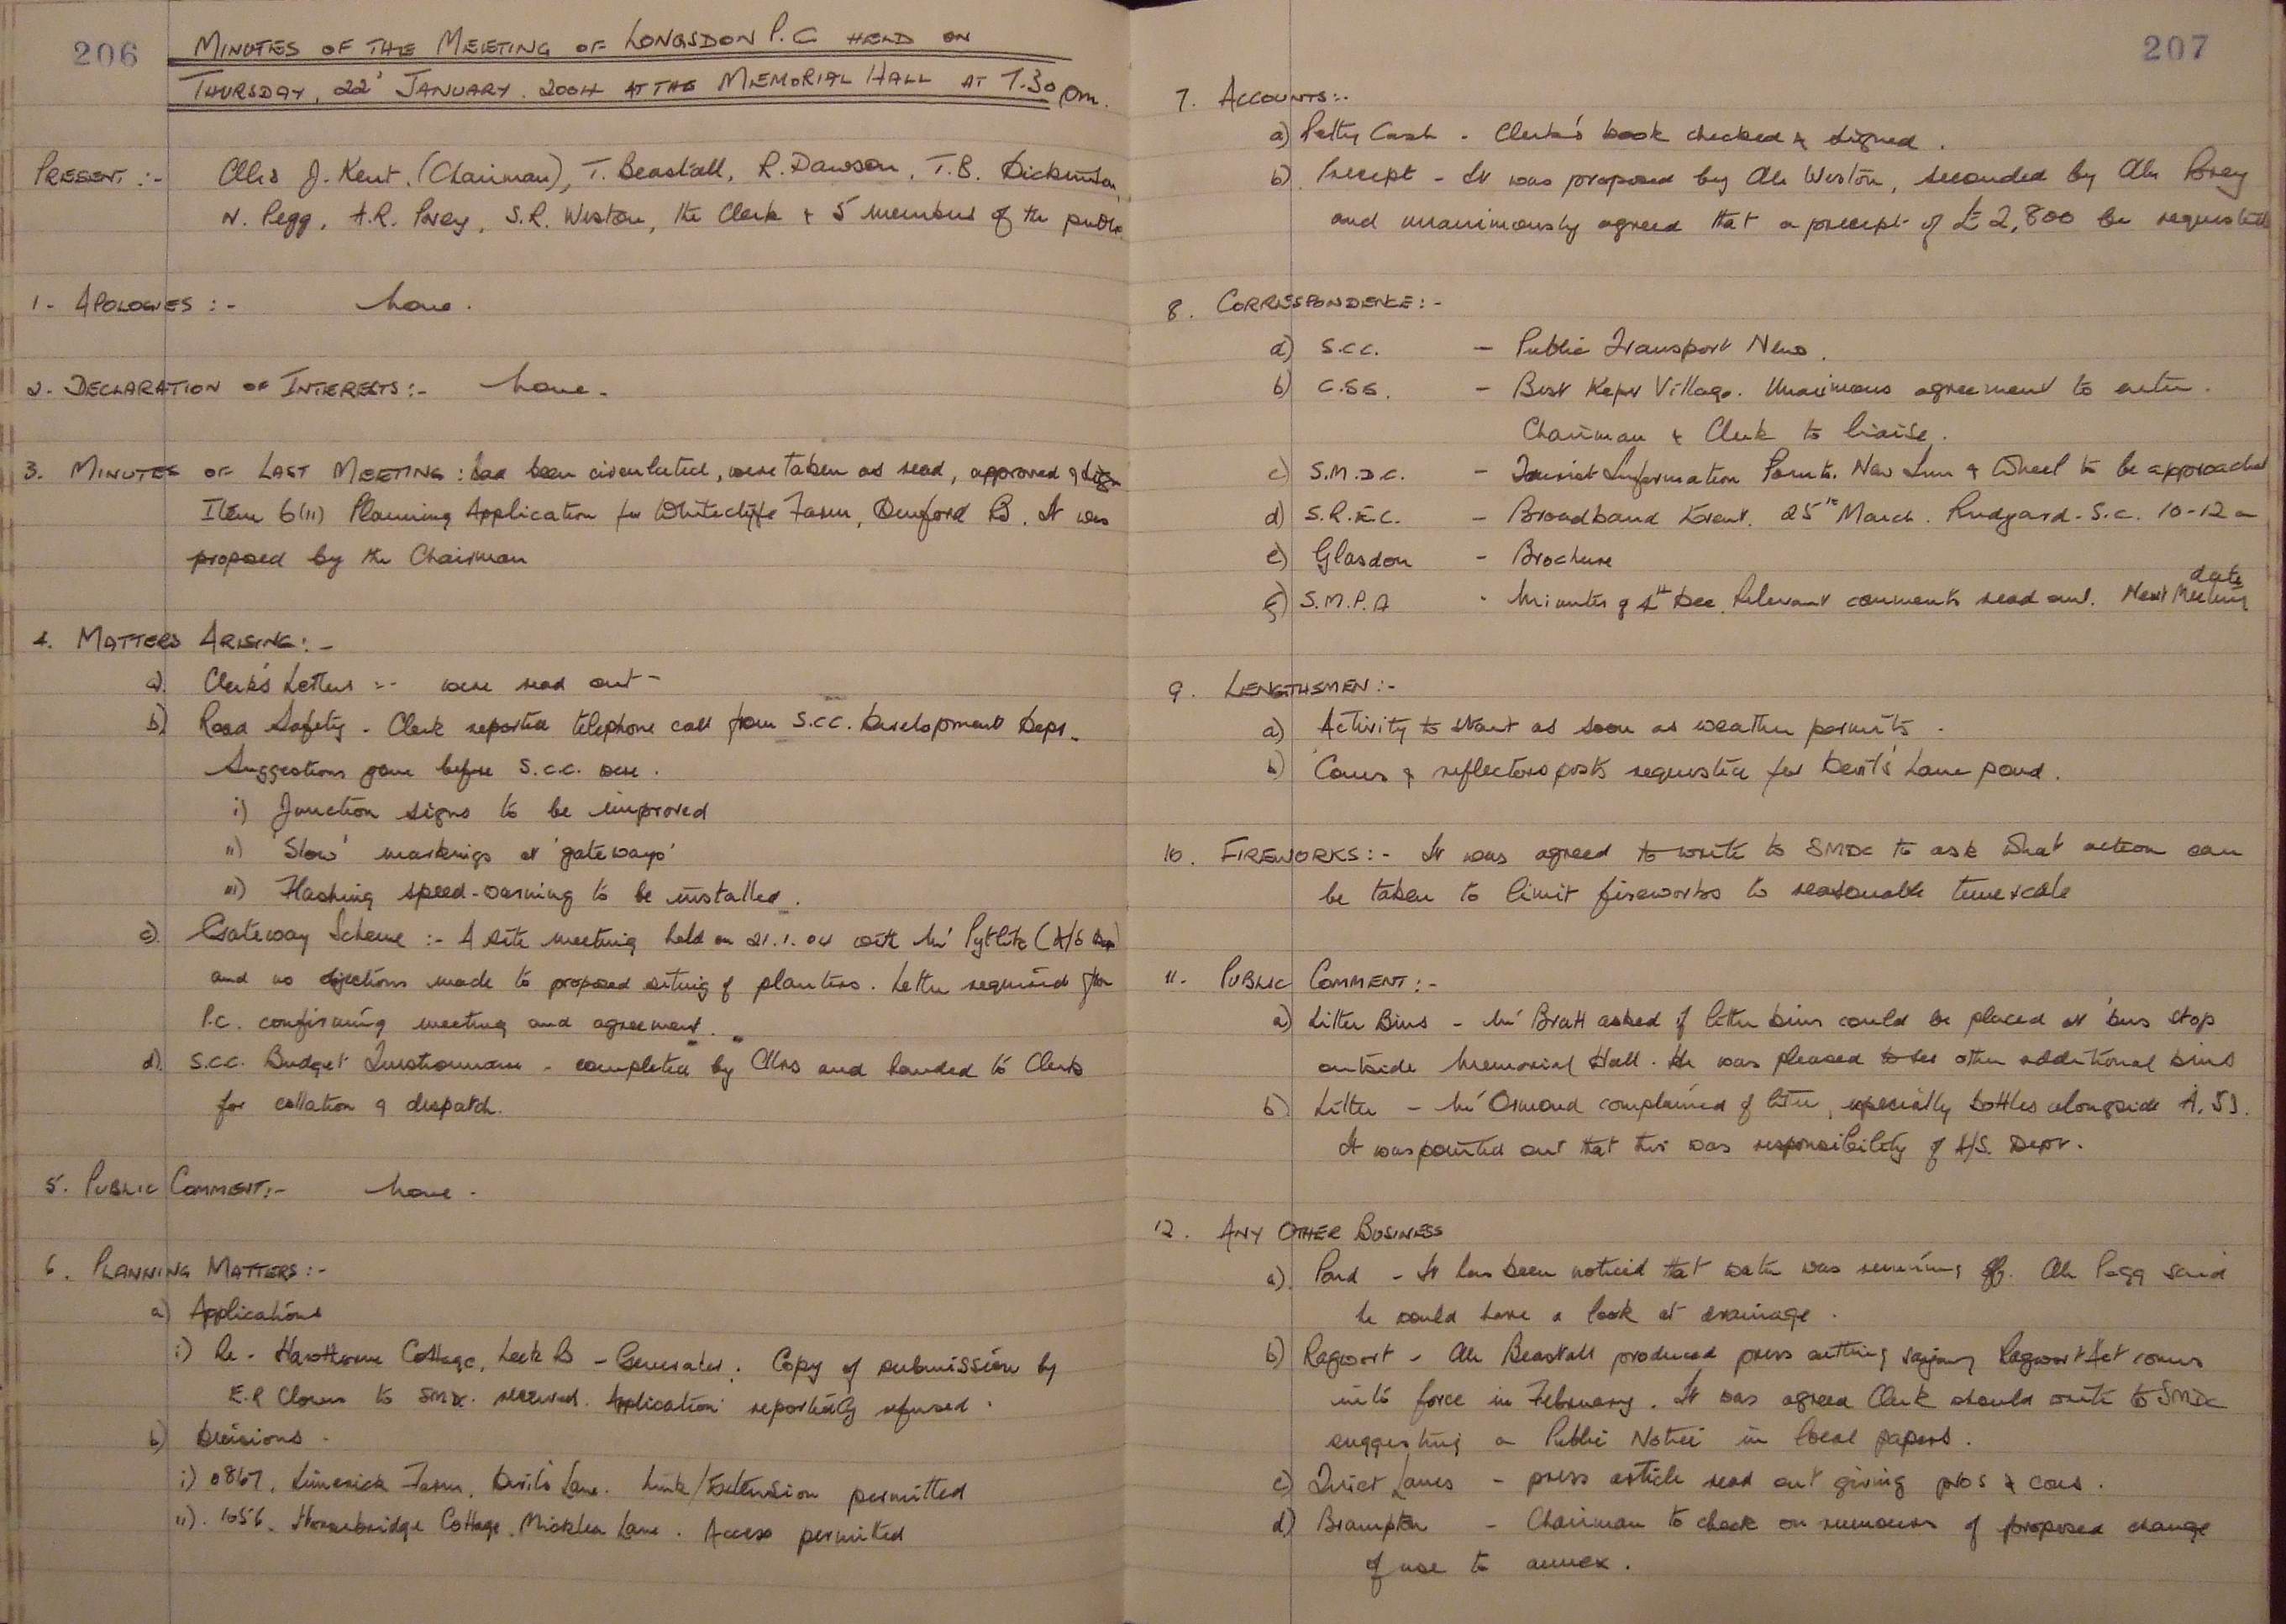 206
MINUTES OF THE MEETING OF LONGSDON P.C HELD ON
THURSDAY, 22' JANUARY. 2004 AT THE MEMORIAL HALL AT 7.30 pm.
PRESENT :- Cllrs J. Kent. (Chairman), T. Beastall, R. Dawson, T.B. Dickinson,
N. Pegg, A.R. Povey, S.R. Weston, the Clerk & 5 members of the public
1- APOLOGIES :- None.
2. DECLARATION OF INTERESTS :- None.
3. MINUTES OF LAST MEETING: had been circulated, were taken as read, approved & sign
Item 6(ii) Planning Application for Whitecliffe Farm, Dunford Rd. It was
proposed by the Chairman
4. MATTERS ARISING: -
a). Clerk's Letters :- were read out -
b) Road Safety - Clerk reported telephone call from S.C.C. Development Dept.
Suggestions gone before S.C.C. were.
i) Junction signs to be improved
ii) 'Slow' markings at 'gateways'
iii) Flashing speed-warning to be installed.
c). Gateway Scheme :- A site meeting held on 21.1.04 with Mr (H/S Dep)
and no objections made to proposed siting of planters. Letter required from
P.C. confirming meeting and agreement.
d). S.C.C. Budget Questionnaire - completed by Cllrs and handed to Clerk
for collation & dispatch.
5. PUBLIC COMMENT:- None.
6. PLANNING MATTERS :-
a) Applications
i) Re - Hawthorne Cottage, Leek Rd - Generator. Copy of submission by
E.R Clowes to SMDC. received. Application reportedly refused.
b) Decisions.
i) 0867. Limerick Farm, Devils Lane. Link/Extension permitted
ii). 1056. Horsebridge Cottage. Micklea Lane. Access permitted
207
7. ACCOUNTS:-.
a) Petty Cash - Clerk's book checked & signed.
b). Precept - It was proposed by Cllr Weston, seconded by Cllr Povey
and unanimously agreed that a precept of £2,800 be requested
8. CORRESPONDENCE: -
a) S.C.C. - Public Transport News.
b) C.SS. - Best Kept Village. Unanimous agreement to enter.
Chairman & Clerk to liaise.
c) S.M.D.C. - Tourist Information Points. New Inn & Wheel to be approached
d) S.R.E.C. - Broadband Event. 25th March. Rudyard. S.C. 10-12 a
e) Glasdon - Brochure
f) S.M.P.A - Minutes of 4th Dec. Relevant comments read out. Next Meeting date
9. LENGTHSMEN :-
a) Activity to start as soon as weather permits.
b) Cones & reflectors posts requested for Devil's Lane pond.
10. FIREWORKS: - It was agreed to write to SMDC to ask what action can
be taken to limit fireworks to reasonable timescale
11. PUBLIC COMMENT :-
a) Litter Bins - Mr Bratt asked if litter bins could be placed at 'bus stop
outside Memorial Hall. He was pleased to see other additional bins
b) Litter - Mr Ormond complained of litter, especially bottles alongside A.53.
It was pointed out that this was responsibility of H/S. Dept.
12. ANY OTHER BUSINESS
a). Pond - It has been noticed that water was running off. Cllr Pegg said
he would have a look at drainage.
b) Ragwort - Cllr Beastall produced press cutting saying Ragwort Act comes
into force in February. It was agreed Clerk should write to SMDC
suggesting a Public Notice in local papers.
c) Quiet Lanes - press article read out giving pros & cons.
d) Brampton - Chairman to check on rumours of proposed change
of use to annex.